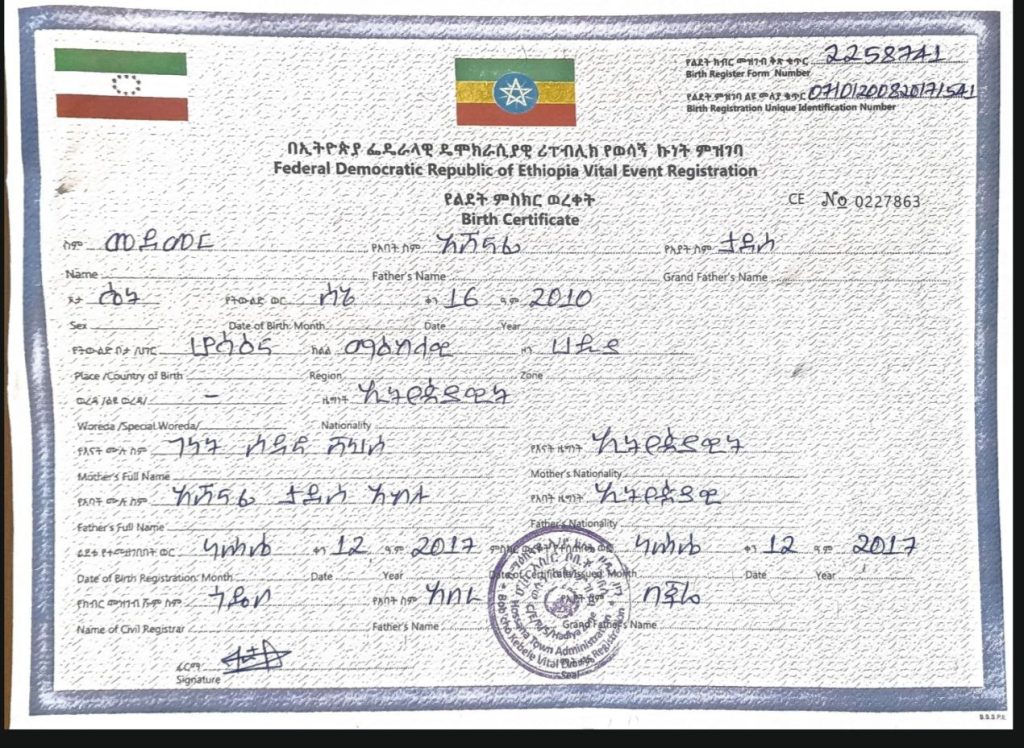 የልደት ክብር መዝገብ ቅጽ ቁጥር 2258741
Birth Register Form Number
የልደት ምዝገባ ልዩ መለያ ቁጥር
Birth Registration Unique Identification Number
በኢትዮጵያ ፌዴራላዊ ዴሞክራሲያዊ ሪፐብሊክ የወሳኝ ኩነት ምዝገባ
Federal Democratic Republic of Ethiopia Vital Event Registration
የልደት ምስክር ወረቀት
Birth Certificate
CE No 0227863
ስም የአባት ስም አሸናፊ የአያት ስም ታደሰ
Name Father's Name Grand Father's Name
ፆታ ሴት የትውልድ ወር ሰኔ ቀን 16 ዓ.ም 2010
Sex Date of Birth: Month Date Year
የትውልድ ቦታ /ሀገር ሆሳዕና ክልል ማዕከላዊ ዞን ሀዲያ
Place /Country of Birth Region Zone
ወረዳ /ልዩ ወረዳ/ – ዜግነት ኢትዮጵያዊት
Woreda /Special Woreda/ Nationality
የእናት ሙሉ ስም ገነት የእናት ዜግነት ኢትዮጵያዊት
Mother's Full Name Mother's Nationality
የአባት ሙሉ ስም አሸናፊ ታደሰ የአባት ዜግነት ኢትዮጵያዊ
Father's Full Name Father's Nationality
ልደቱ የተመዘገበበት ወር ነሐሴ ቀን 12 ዓ.ም 2017 ነሐሴ ቀን 12 ዓ.ም 2017
Date of Birth Registration: Month Date Year Date of Certificate Issued: Month Date Year
የክብር መዝገብ ሹም ስም የአባት ስም
Name of Civil Registrar Father's Name Grand Father's Name
ፊርማ
Signature
Hossana Town Administration
Bobicho Kebele Vital Events Registration
Seal